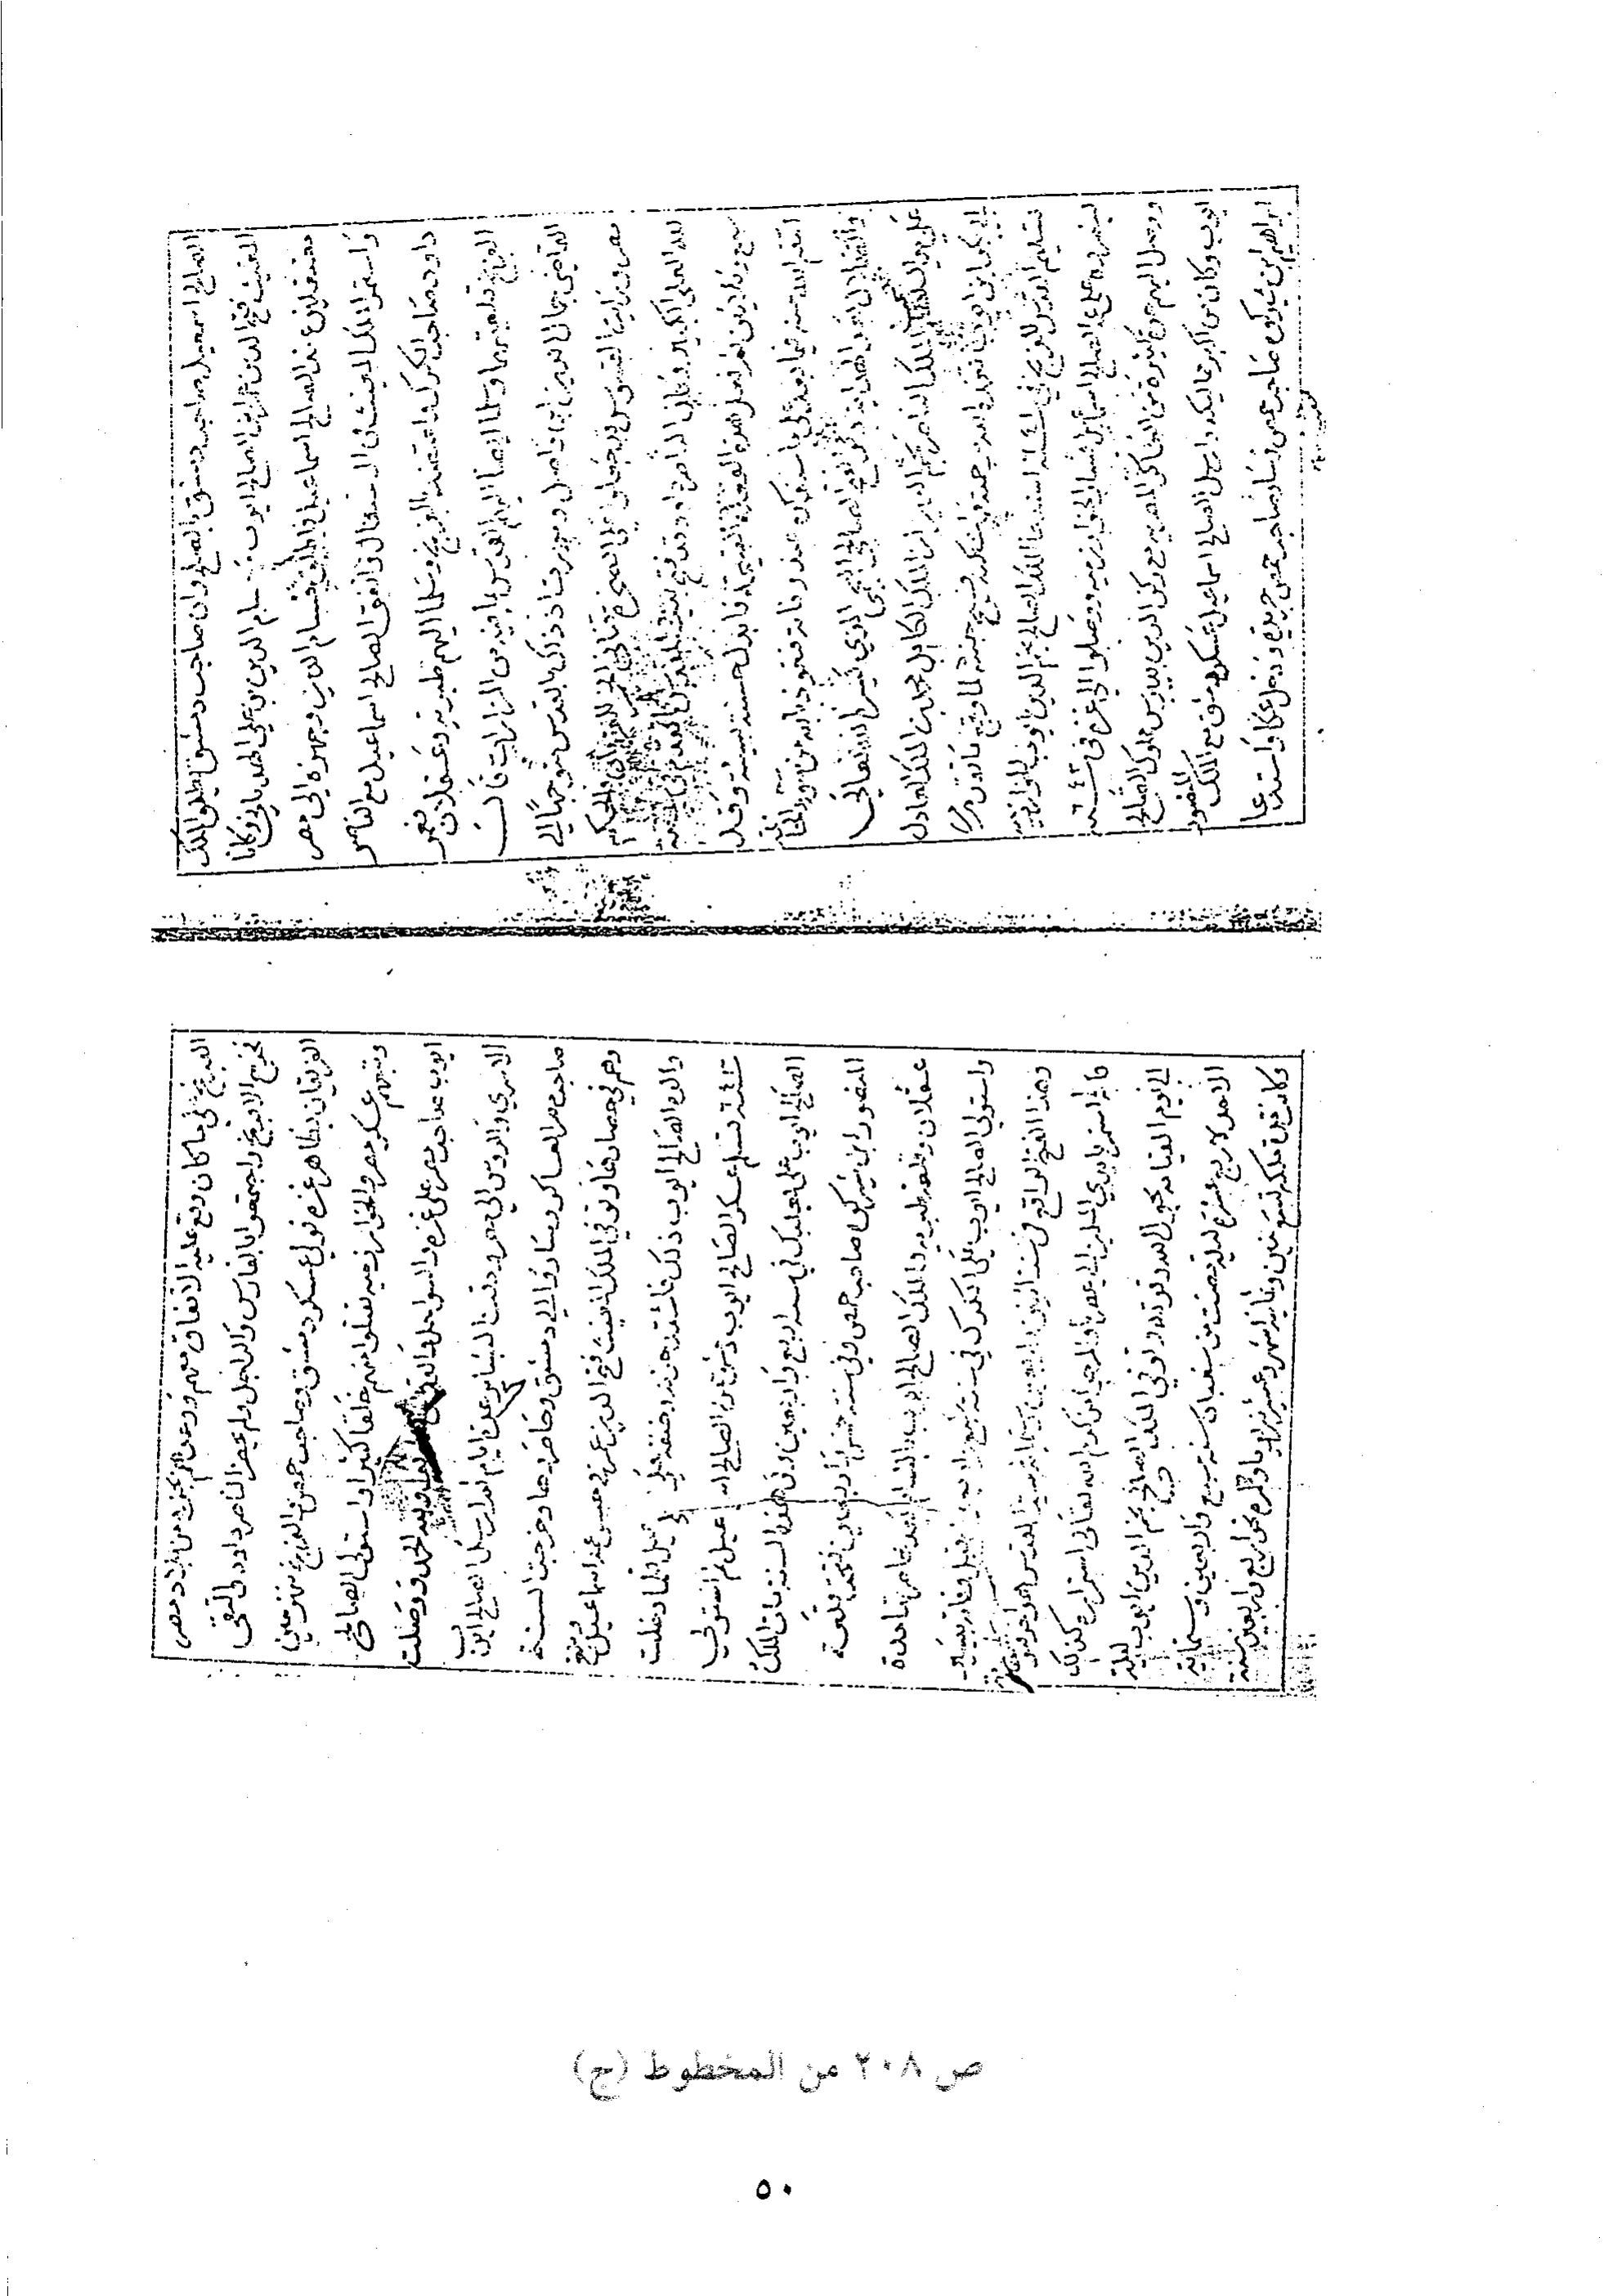 الصالح اسمعيل صاحب دمشق الصلح وان صاحب دمشق يطلق الملك
المغيث فتح الدين عمر ابن الصالح ايوب وحسام الدين بن علي الهدباني وكانا
معتقلين عند الصالح اسماعيل فاطلق حسام الدين وجهزه الى مصر
واستمر الملك المغيث في الاعتقال واتفق الصالح اسماعيل مع الناصر
داود صاحب الكرك واعتضد بالفرنج وسلما اليهم طبريه وعسقلان فعمر
الفرنج قلعتيهما وسلما ايضا اليهم القدس بما فيه من المزارات قال
القاضي جمال الدين ابن واصل ومررت اذ ذاك بالقدس متوجها الى
مصر ورايت القسوس وقد جعلوا على الصخرة قناني الخمر للقربان والحكم
لله العلي الكبير وكان الناصر داود قد فتح بيت المقدس كما تقدم في سنة
سبع وثلاثين ثم فعل هذه الفعلة القبيحة فابدل حسنته بسيئة وقد
انتقم الله منه فيما بعد على ما سنذكره عند وفاته فنعوذ بالله من سوء الخاتمة
الصالحي النجمي الذي يسره الله تعالى
على يد الملك نجم الدين ابن الملك الكامل محمد ابن الملك العادل
ابي بكر ابن ايوب تغمده الله برحمته واسكنه فسيح جنته لما وقع ما تقدم من
تسليم القدس للفرنج في سنة ٦٤١ استدعا الملك الصالح نجم الدين ايوب الخوارزميه
لينصروه على عمه الصالح اسماعيل فسار الخوارزميه ووصلوا الى غزه في سنة ٦٤٢
ووصل اليهم عدة كثيرة من العساكر المصريه مع ركن الدين بيبرس مملوك الصالح
ايوب وكان من اكبر مماليكه وارسل الصالح اسماعيل عسكر دمشق مع الملك المنصور
ابراهيم بن شيركوه صاحب حمص وسار صاحب حمص جريدة ودخل عكا واستدعا
الفرنج على ما كان وقع عليه الاتفاق معهم ووعدهم بجزء من بلاد مصر
فخرج الافرنج واجتمعوا بالفارس والراجل ولم يحضر الناصر داود والتقى
الفريقان بظاهر غزه فولى عسكر دمشق وصاحب حمص والفرنج منهزمين
وتبعهم عسكر مصر والخوارزميه فقتلوا منهم خلقا كثيرا واستولى الصالح
ايوب صاحب مصر على غزه والسواحل والقدس ولله الحمد ووصلت
الاسرى والروس الى مصر ودقت البشاير عدة ايام ثم ارسل الصالح ايوب
صاحب مصر العساكر وساروا الى دمشق وحاصروها وخرجت السنة
وهم في حصارها وتوفي الملك المغيث فتح الدين عمر في حبس عمه اسماعيل
والده الصالح ايوب ذلك فاشتد حزنه وحنقه على ولما دخلت
سنة ٦٤٣ تسلم عسكر الصالح ايوب دمشق من الصالح اسماعيل ثم استولى
الصالح ايوب على بعلبك في سنة اربع واربعين وفي هذه السنة مات الملك
المنصور ابن شيركوه صاحب حمص وفي سنة خمس واربعين فتحت قلعة
عسقلان وقلعة طبريه والملك الصالح ايوب بالشام بعد محاصرتها مدة
واستولى الصالح ايوب على الكرك في سنة
وهذا الفتح الواقع في سنة اثنين واربعين وستمايه
فانه استمر بايدي المسلمين الى عصرنا والمرجو من كرم الله تعالى استمراره كذلك
الى يوم القيامه بحول الله وقوته وتوفي الملك الصالح نجم الدين ايوب ليلة
الاحد لاربع عشرة ليلة مضت من شعبان سنة سبع واربعين وستمايه
وكانت مدة مملكته تسع سنين وثمانيه اشهر وعشرين يوما وعمره نحو اربع واربعين سنة
ص ٢٠٨ من المخطوط (ج)
٥٠